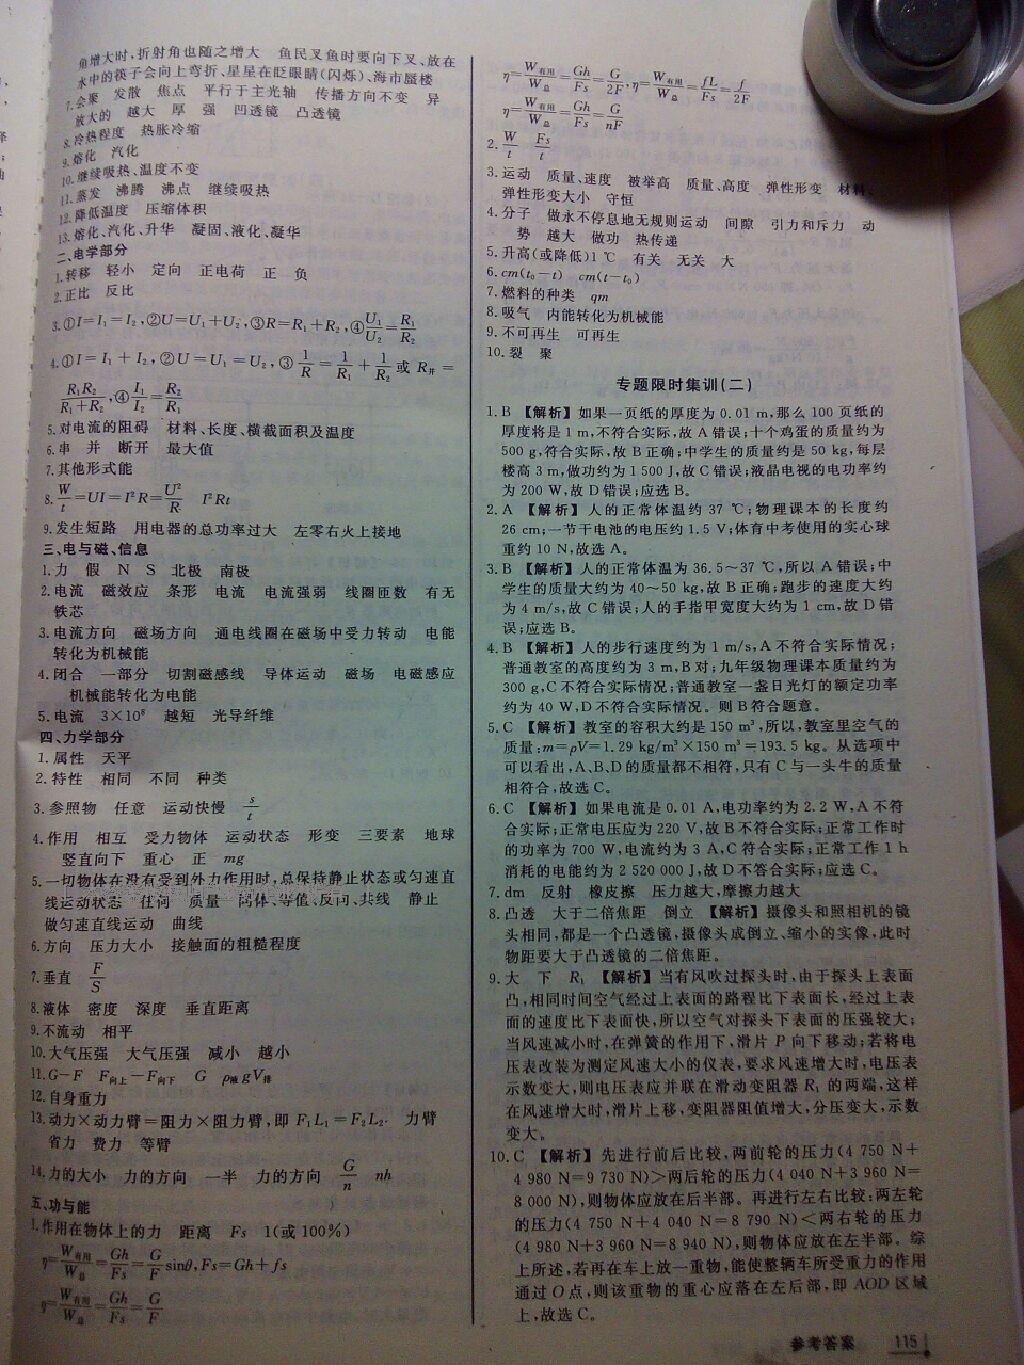 角增大时,折射角也随之增大　鱼民叉鱼时要向下叉、放在
水中的筷子会向上弯折、星星在眨眼睛(闪烁)、海市蜃楼
7.会聚　发散　焦点　平行于主光轴　传播方向不变　异
放大的　越大　厚　强　凹透镜　凸透镜
8.冷热程度　热胀冷缩
9.熔化　汽化
10.继续吸热、温度不变
11.蒸发　沸腾　沸点　继续吸热
12.降低温度　压缩体积
13.熔化、汽化、升华　凝固、液化、凝华
二、电学部分
1.转移　轻小　定向　正电荷　正　负
2.正比　反比
3.①I=I₁=I₂,②U=U₁+U₂,③R=R₁+R₂,④U₁/U₂=R₁/R₂
4.①I=I₁+I₂,②U=U₁=U₂,③1/R=1/R₁+1/R₂或R并=
R₁R₂/(R₁+R₂),④I₁/I₂=R₂/R₁
5.对电流的阻碍　材料、长度、横截面积及温度
6.串　并　断开　最大值
7.其他形式能
8.W/t=UI=I²R=U²/R　I²Rt
9.发生短路　用电器的总功率过大　左零右火上接地
三、电与磁、信息
1.力　假　N　S　北极　南极
2.电流　磁效应　条形　电流　电流强弱　线圈匝数　有无
铁芯
3.电流方向　磁场方向　通电线圈在磁场中受力转动　电能
转化为机械能
4.闭合　一部分　切割磁感线　导体运动　磁场　电磁感应
机械能转化为电能
5.电流　3×10⁸　越短　光导纤维
四、力学部分
1.属性　天平
2.特性　相同　不同　种类
3.参照物　任意　运动快慢　s/t
4.作用　相互　受力物体　运动状态　形变　三要素　地球
竖直向下　重心　正　mg
5.一切物体在没有受到外力作用时,总保持静止状态或匀速直
线运动状态　任何　质量　同体、等值、反向、共线　静止
做匀速直线运动　曲线
6.方向　压力大小　接触面的粗糙程度
7.垂直　F/S
8.液体　密度　深度　垂直距离
9.不流动　相平
10.大气压强　大气压强　减小　越小
11.G−F　F向上−F向下　G　ρ液gV排
12.自身重力
13.动力×动力臂=阻力×阻力臂,即F₁L₁=F₂L₂.　力臂
省力　费力　等臂
14.力的大小　力的方向　一半　力的方向　G/n　nh
五、功与能
1.作用在物体上的力　距离　Fs　1(或100%)
η=W有用/W总=Gh/Fs=G/F sinθ,Fs=Gh+fs
η=W有用/W总=Gh/Fs=G/F
η=W有用/W总=Gh/Fs=G/2F,η=W有用/W总=fL/Fs=f/2F
η=W有用/W总=Gh/Fs=G/nF
2.W/t　Fs/t
3.运动　质量、速度　被举高　质量、高度　弹性形变　材料、
弹性形变大小　守恒
4.分子　做永不停息地无规则运动　间隙　引力和斥力　动
势　越大　做功　热传递
5.升高(或降低)1 ℃　有关　无关　大
6.cm(t₀−t)　cm(t−t₀)
7.燃料的种类　qm
8.吸气　内能转化为机械能
9.不可再生　可再生
10.裂　聚
专题限时集训(二)
1.B 【解析】如果一页纸的厚度为0.01 m,那么100页纸的
厚度将是1 m,不符合实际,故A错误;十个鸡蛋的质量约为
500 g,符合实际,故B正确;中学生的质量约是50 kg,每层
楼高3 m,做功约为1 500 J,故C错误;液晶电视的电功率约
为200 W,故D错误;应选B。
2.A 【解析】人的正常体温约37 ℃;物理课本的长度约
26 cm;一节干电池的电压约1.5 V;体育中考使用的实心球
重约10 N,故选A。
3.B 【解析】人的正常体温为36.5~37 ℃,所以A错误;中
学生的质量大约为40~50 kg,故B正确;跑步的速度大约
为4 m/s,故C错误;人的手指甲宽度大约为1 cm,故D错
误;应选B。
4.B 【解析】人的步行速度约为1 m/s,A不符合实际情况;
普通教室的高度约为3 m,B对;九年级物理课本质量约为
300 g,C不符合实际情况;普通教室一盏日光灯的额定功率
约为40 W,D不符合实际情况。则B符合题意。
5.C 【解析】教室的容积大约是150 m³,所以,教室里空气的
质量:m=ρV=1.29 kg/m³×150 m³=193.5 kg。从选项中
可以看出,A、B、D的质量都不相符,只有C与一头牛的质量
相符合,故选C。
6.C 【解析】如果电流是0.01 A,电功率约为2.2 W,A不符
合实际;正常电压应为220 V,故B不符合实际;正常工作时
的功率为700 W,电流约为3 A,C符合实际;正常工作1 h
消耗的电能约为2 520 000 J,故D不答合实际;应选C。
7.dm　反射　橡皮擦　压力越大,摩擦力越大
8.凸透　大于二倍焦距　倒立 【解析】摄像头和照相机的镜
头相同,都是一个凸透镜,摄像头成倒立、缩小的实像,此时
物距要大于凸透镜的二倍焦距。
9.大　下　R₁ 【解析】当有风吹过探头时,由于探头上表面
凸,相同时间空气经过上表面的路程比下表面长,经过上表
面的速度比下表面快,所以空气对探头下表面的压强较大;
当风速减小时,在弹簧的作用下,滑片P向下移动;若将电
压表改装为测定风速大小的仪表,要求风速增大时,电压表
示数变大,则电压表应并联在滑动变阻器R₁的两端,这样
在风速增大时,滑片上移,变阻器阻值增大,分压变大,示数
变大。
10.C 【解析】先进行前后比较,两前轮的压力(4 750 N+
4 980 N=9 730 N)>两后轮的压力(4 040 N+3 960 N=
8 000 N),则物体应放在后半部。再进行左右比较:两左轮
的压力(4 750 N+4 040 N=8 790 N)<两右轮的压力
(4 980 N+3 960 N=8 940 N),则物体应放在左半部。综
上所述,若再在车上放一重物,能使整辆车所受重力的作用
通过O点,则该重物的重心应落在左后部,即AOD区域
上,故选C。
参考答案　115